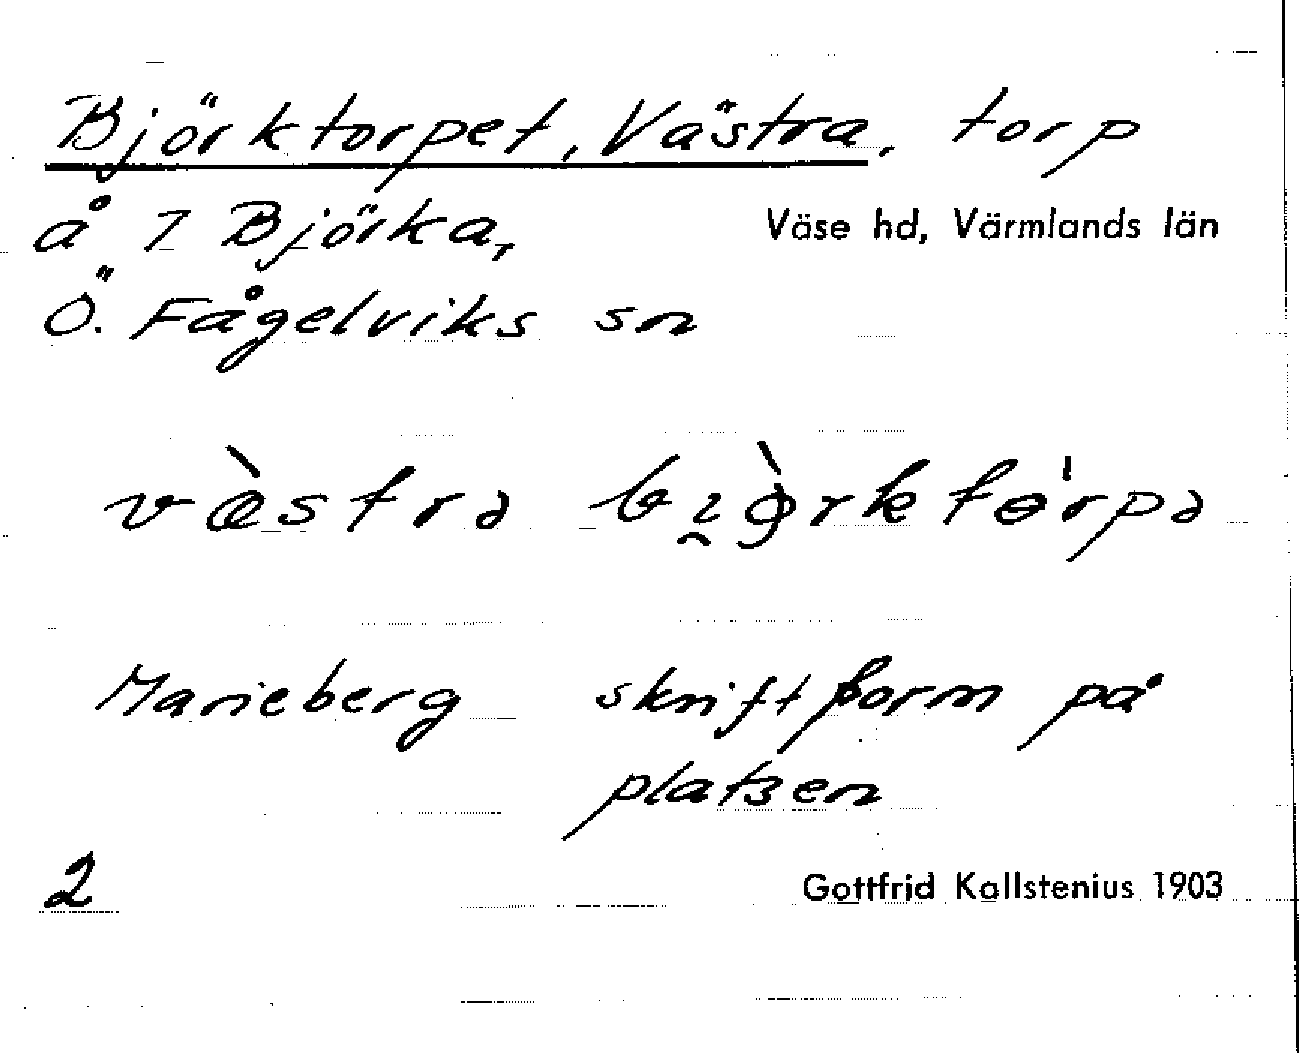 Björktorpet, Västra, torp
å 7 Björka, Väse hd, Värmlands län
Ö. Fågelviks sn
Marieberg skriftform på
platsen
2 Gottfrid Kallstenius 1903